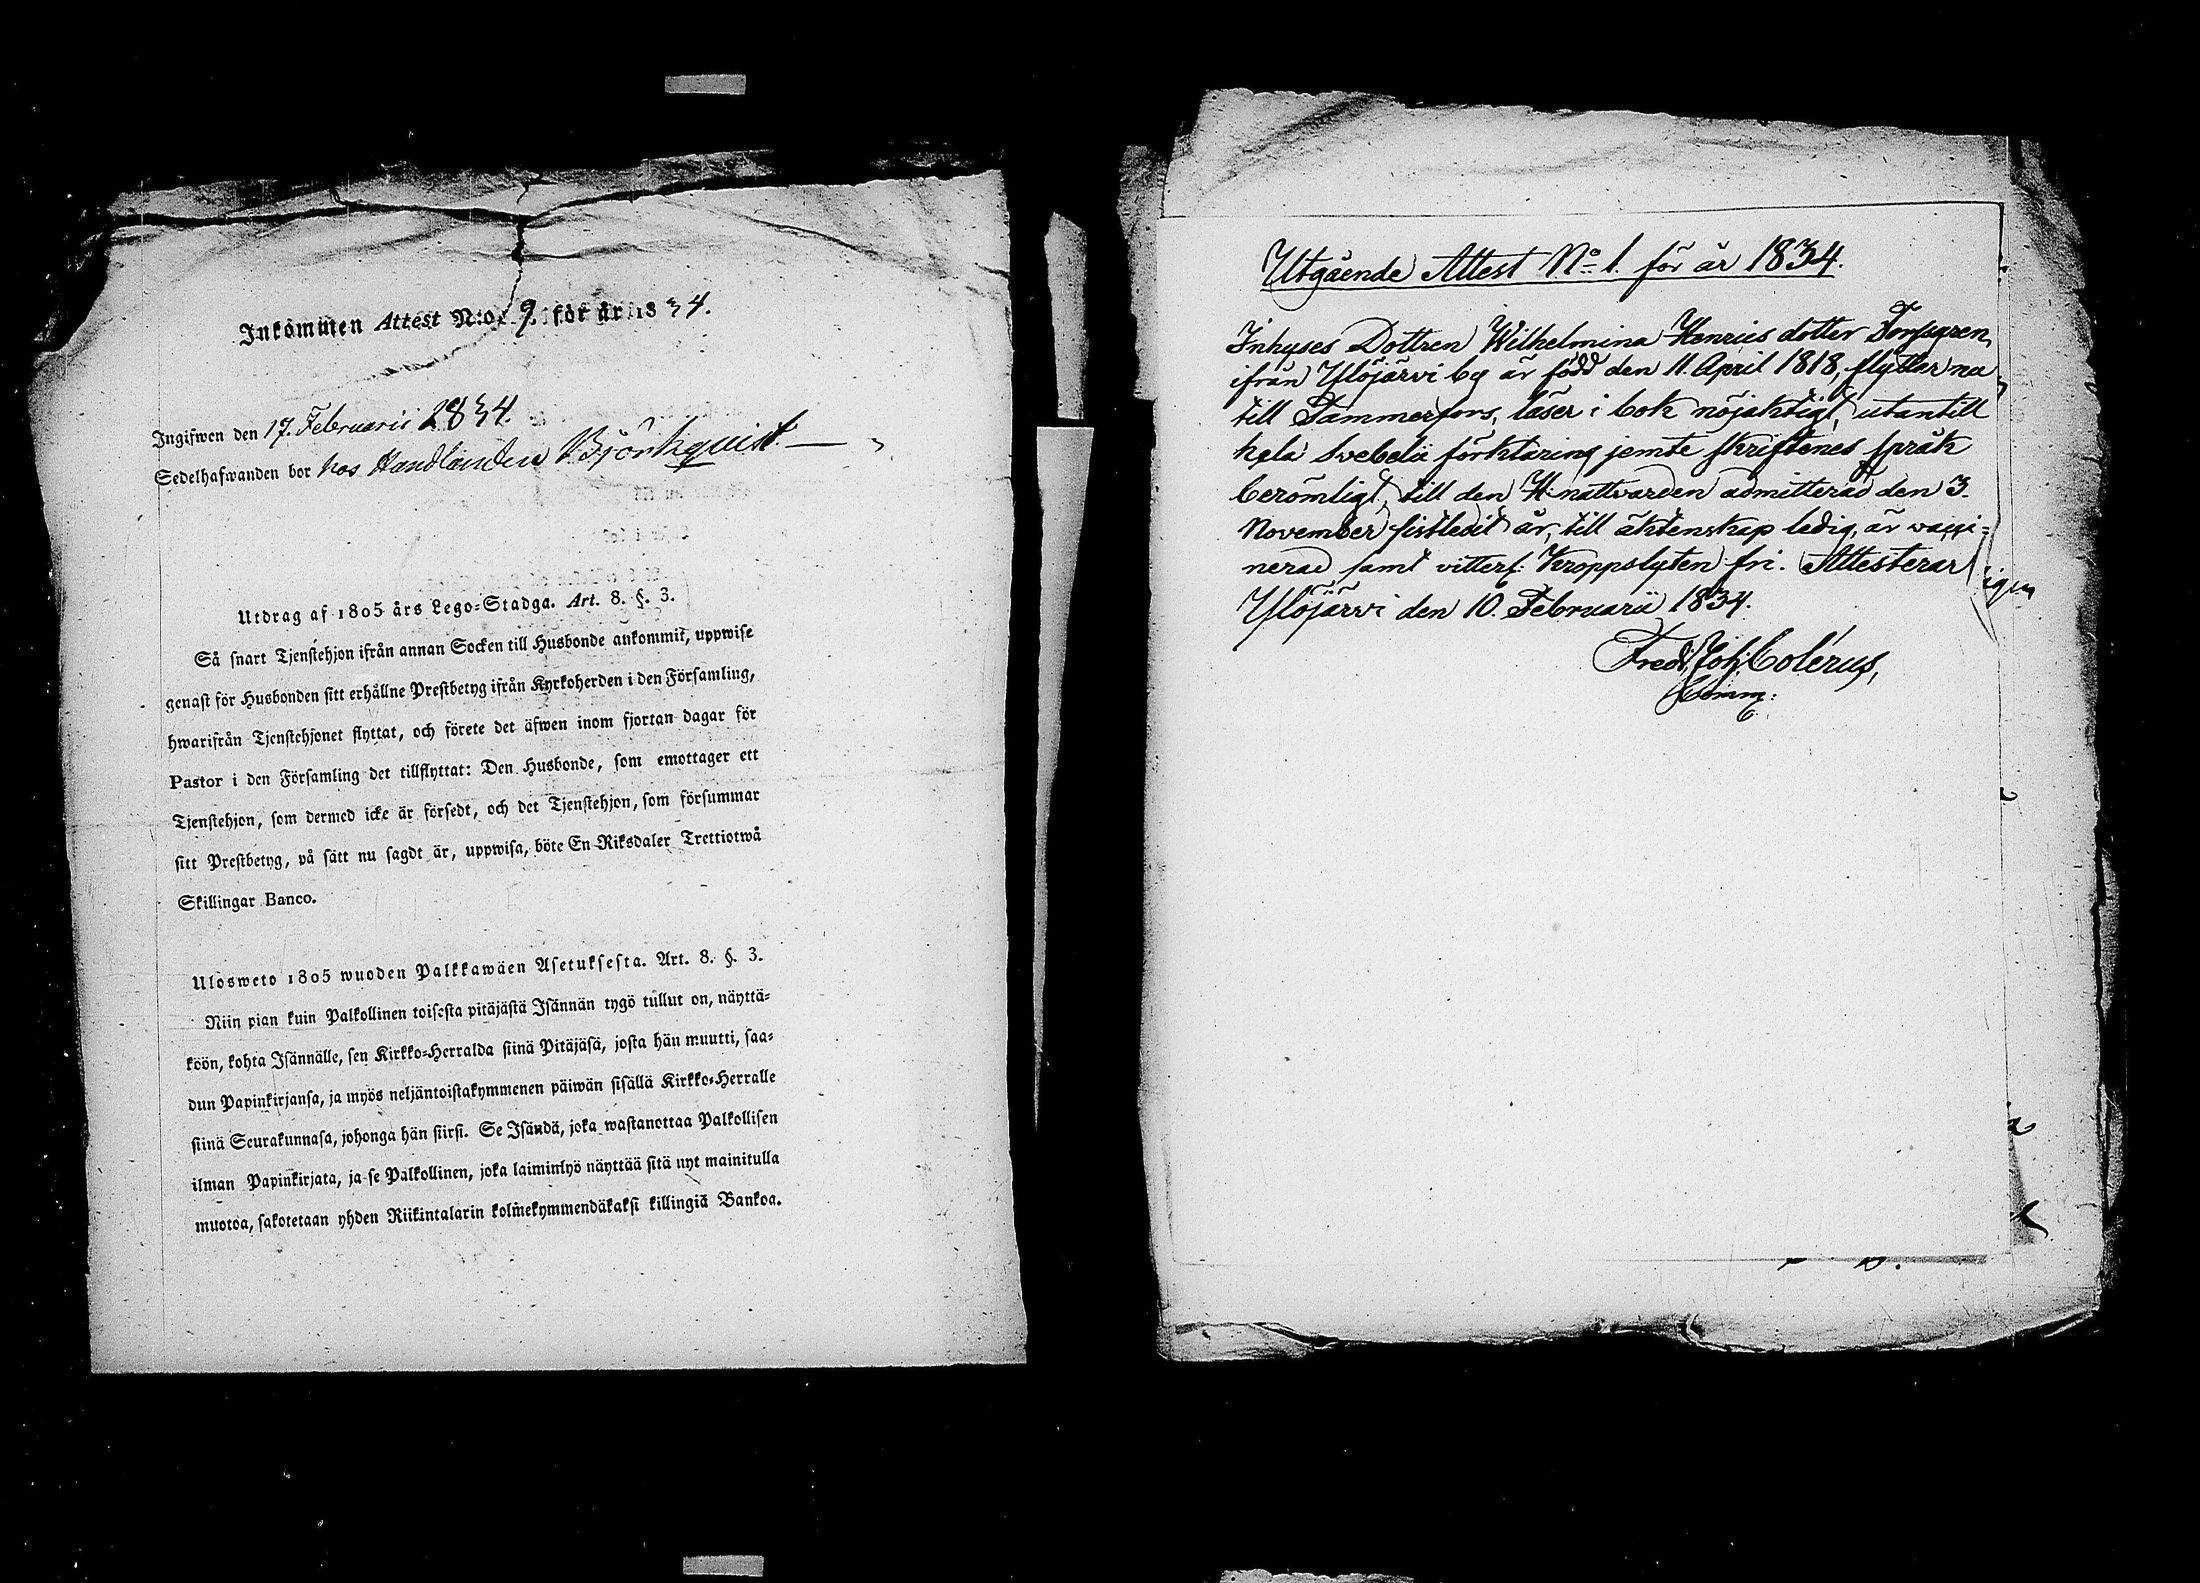 Inkommen Attest N:o 9 för år 1834.
Ingifwen den 17. Februarii 1834.
Sedelhafwanden bor hos Handlanden Björkquist.
Utdrag af 1805 års Lego-Stadga. Art. 8. §. 3.
Så snart Tjenstehjon ifrån annan Socken till Husbonde ankommit, uppwise
genast för Husbonden sitt erhållne Prestbetyg ifrån Kyrkoherden i den Församling,
hwarifrån Tjenstehjonet flyttat, och förete det äfwen inom fjortan dagar för
Pastor i den Församling det tillflyttat: Den Husbonde, som emottager ett
Tjenstehjon, som dermed icke är försedt, och det Tjenstehjon, som försummar
sitt Prestbetyg, på sätt nu sagdt är, uppwisa, böte En Riksdaler Trettiotwå
Skillingar Banco.
Ulosweto 1805 wuoden Palkkawäen Asetuksesta. Art. 8. §. 3.
Niin pian kuin Palkollinen toisesta pitäjästä Isännän tygö tullut on, näyttä-
köön, kohta Isännälle, sen Kirkko-Herralda siinä Pitäjäsä, josta hän muutti, saa-
dun Papinkirjansa, ja myös neljäntoistakymmenen päiwän sisällä Kirkko-Herralle
siinä Seurakunnasa, johonga hän siirsi. Se Isändä, joka wastanottaa Palkollisen
ilman Papinkirjata, ja se Palkollinen, joka laiminlyö näyttää sitä nyt mainitulla
muotoa, sakotetaan yhden Riikintalarin kolmekymmendäkaksi killingiä Bankoa.
Utgående Attest No 1. för år 1834.
Inhyses Dottren Wilhelmina Henrics dotter
ifrån Ylöjärvi by är född den 11. April 1818, flyttar nu
till Tammerfors, läser i bok nöjaktigt, utantill
hela Svebelii förklaring jemte skriftenes språk
berömligt, till den H: nattvarden admitterad den 3.
November sistledit år, till äktenskap ledig, är vacci-
nerad samt vitterl: Kroppslyten fri. Attesterar
Ylöjärvi den 10. Februarii 1834.
Fredr. Joh. Colérus,
Comm: